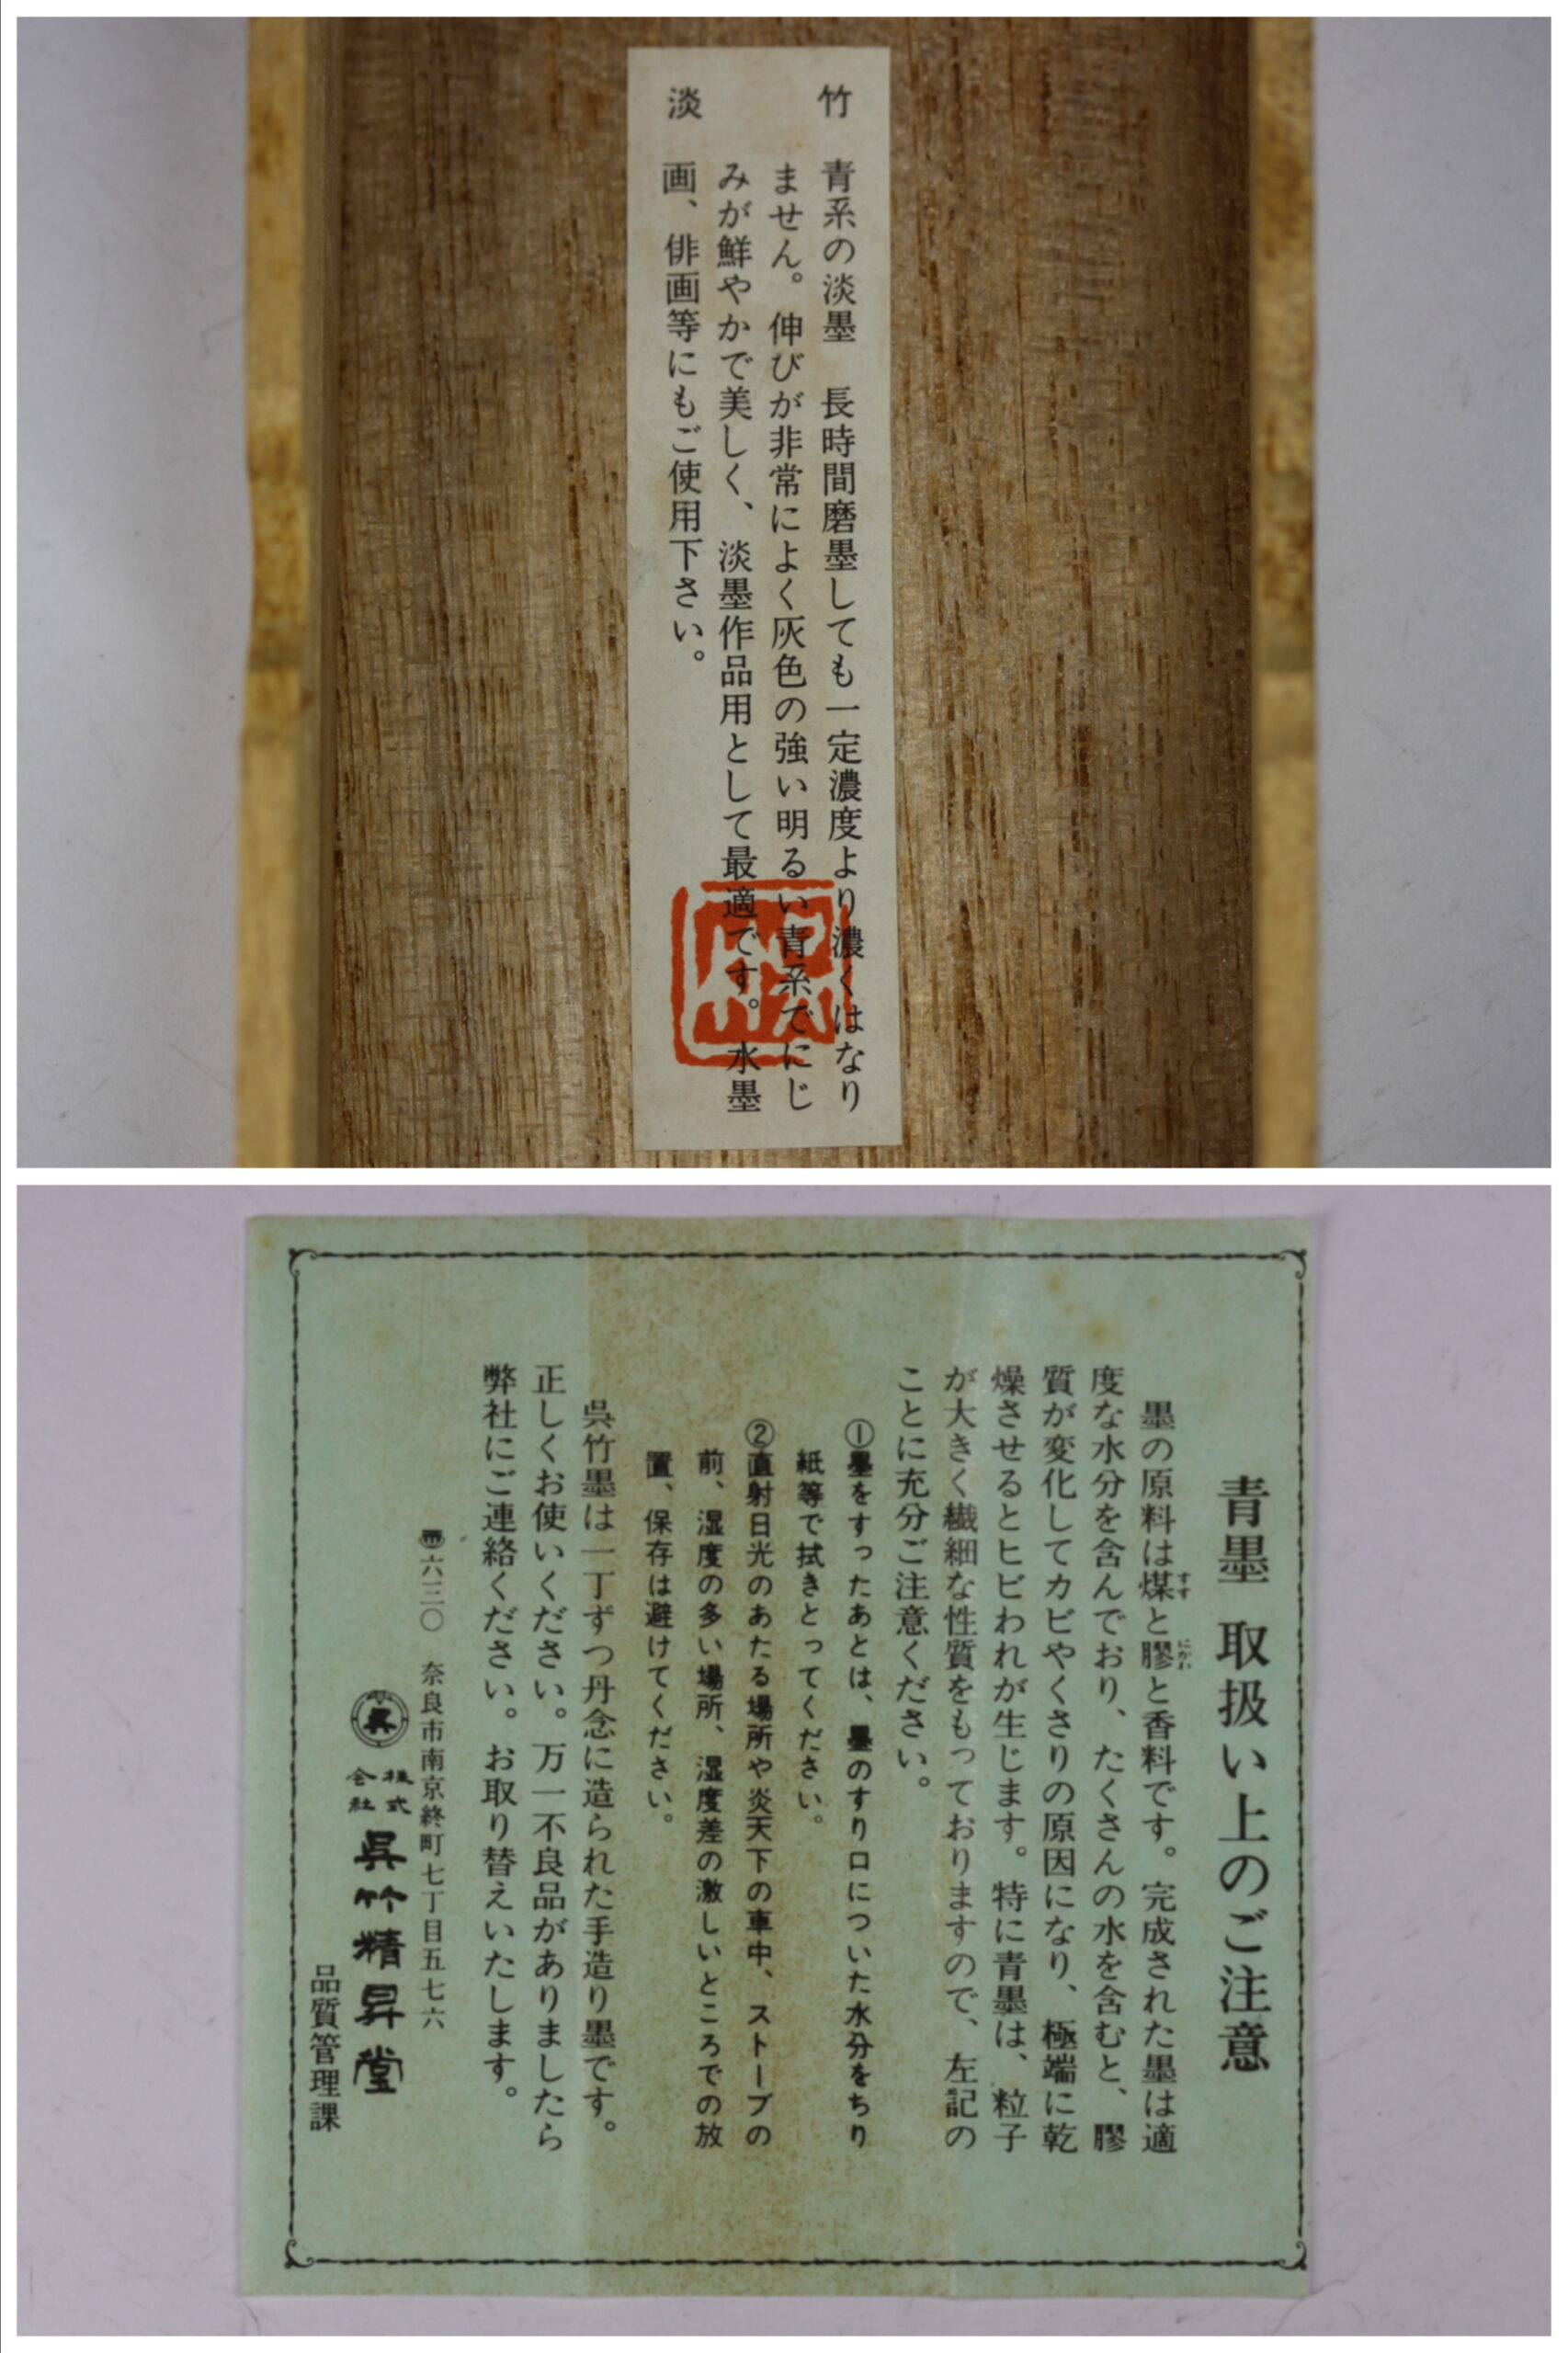 竹 青系の淡墨 長時間磨墨しても一定濃度より濃くはなり
ません。伸びが非常によく灰色の強い明るい青系でにじ
みが鮮やかで美しく、淡墨作品用として最適です。水墨
淡 画、俳画等にもご使用下さい。
青墨 取扱い上のご注意
墨の原料は煤と膠と香料です。完成された墨は適
すす にかわ
度な水分を含んでおり、たくさんの水を含むと、膠
質が変化してカビやくさりの原因になり、極端に乾
燥させるとヒビわれが生じます。特に青墨は、粒子
が大きく繊細な性質をもっておりますので、左記の
ことに充分ご注意ください。
①墨をすったあとは、墨のすり口についた水分をちり
紙等で拭きとってください。
②直射日光のあたる場所や炎天下の車中、ストーブの
前、湿度の多い場所、湿度差の激しいところでの放
置、保存は避けてください。
呉竹墨は一丁ずつ丹念に造られた手造り墨です。
正しくお使いください。万一不良品がありましたら
弊社にご連絡ください。お取り替えいたします。
〠六三〇 奈良市南京終町七丁目五七六
呉 株式会社 呉竹精昇堂
品質管理課